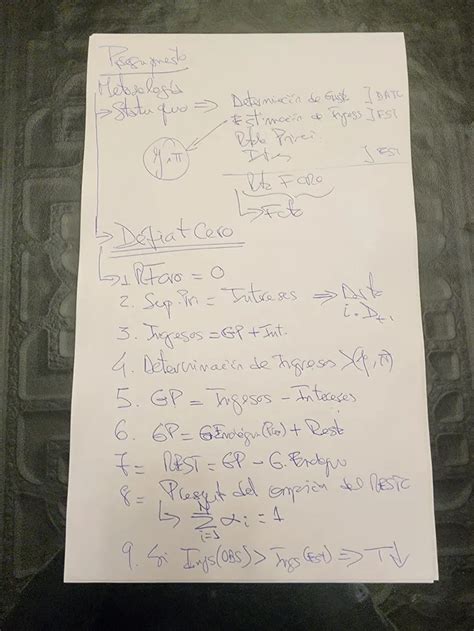 Presupuesto
Metodología
→ Status quo ⇒ Determinación de Gasto ] DATO
Estimación de Ingresos ] EST
Rtdo Primari.
Int ] EST
y, π
Rtdo FCRO
↳ Fcte
→ Deficit Cero
↳ 1 RFcro = 0
2. Sup. Pri = Intereses ⇒ Dato
3. Ingresos = GP + Int.
4. Determinación de Ingresos (y, π)
5. GP = Ingresos - Intereses
6. GP = GEndógeno(Pro) + Resto
7= REST = GP - G. Endógeno
8= Presup del del RESTO
↳ N Σ i=1 αi = 1
9. Si Ings(OBS) > Ings(Est) ⇒ T↓